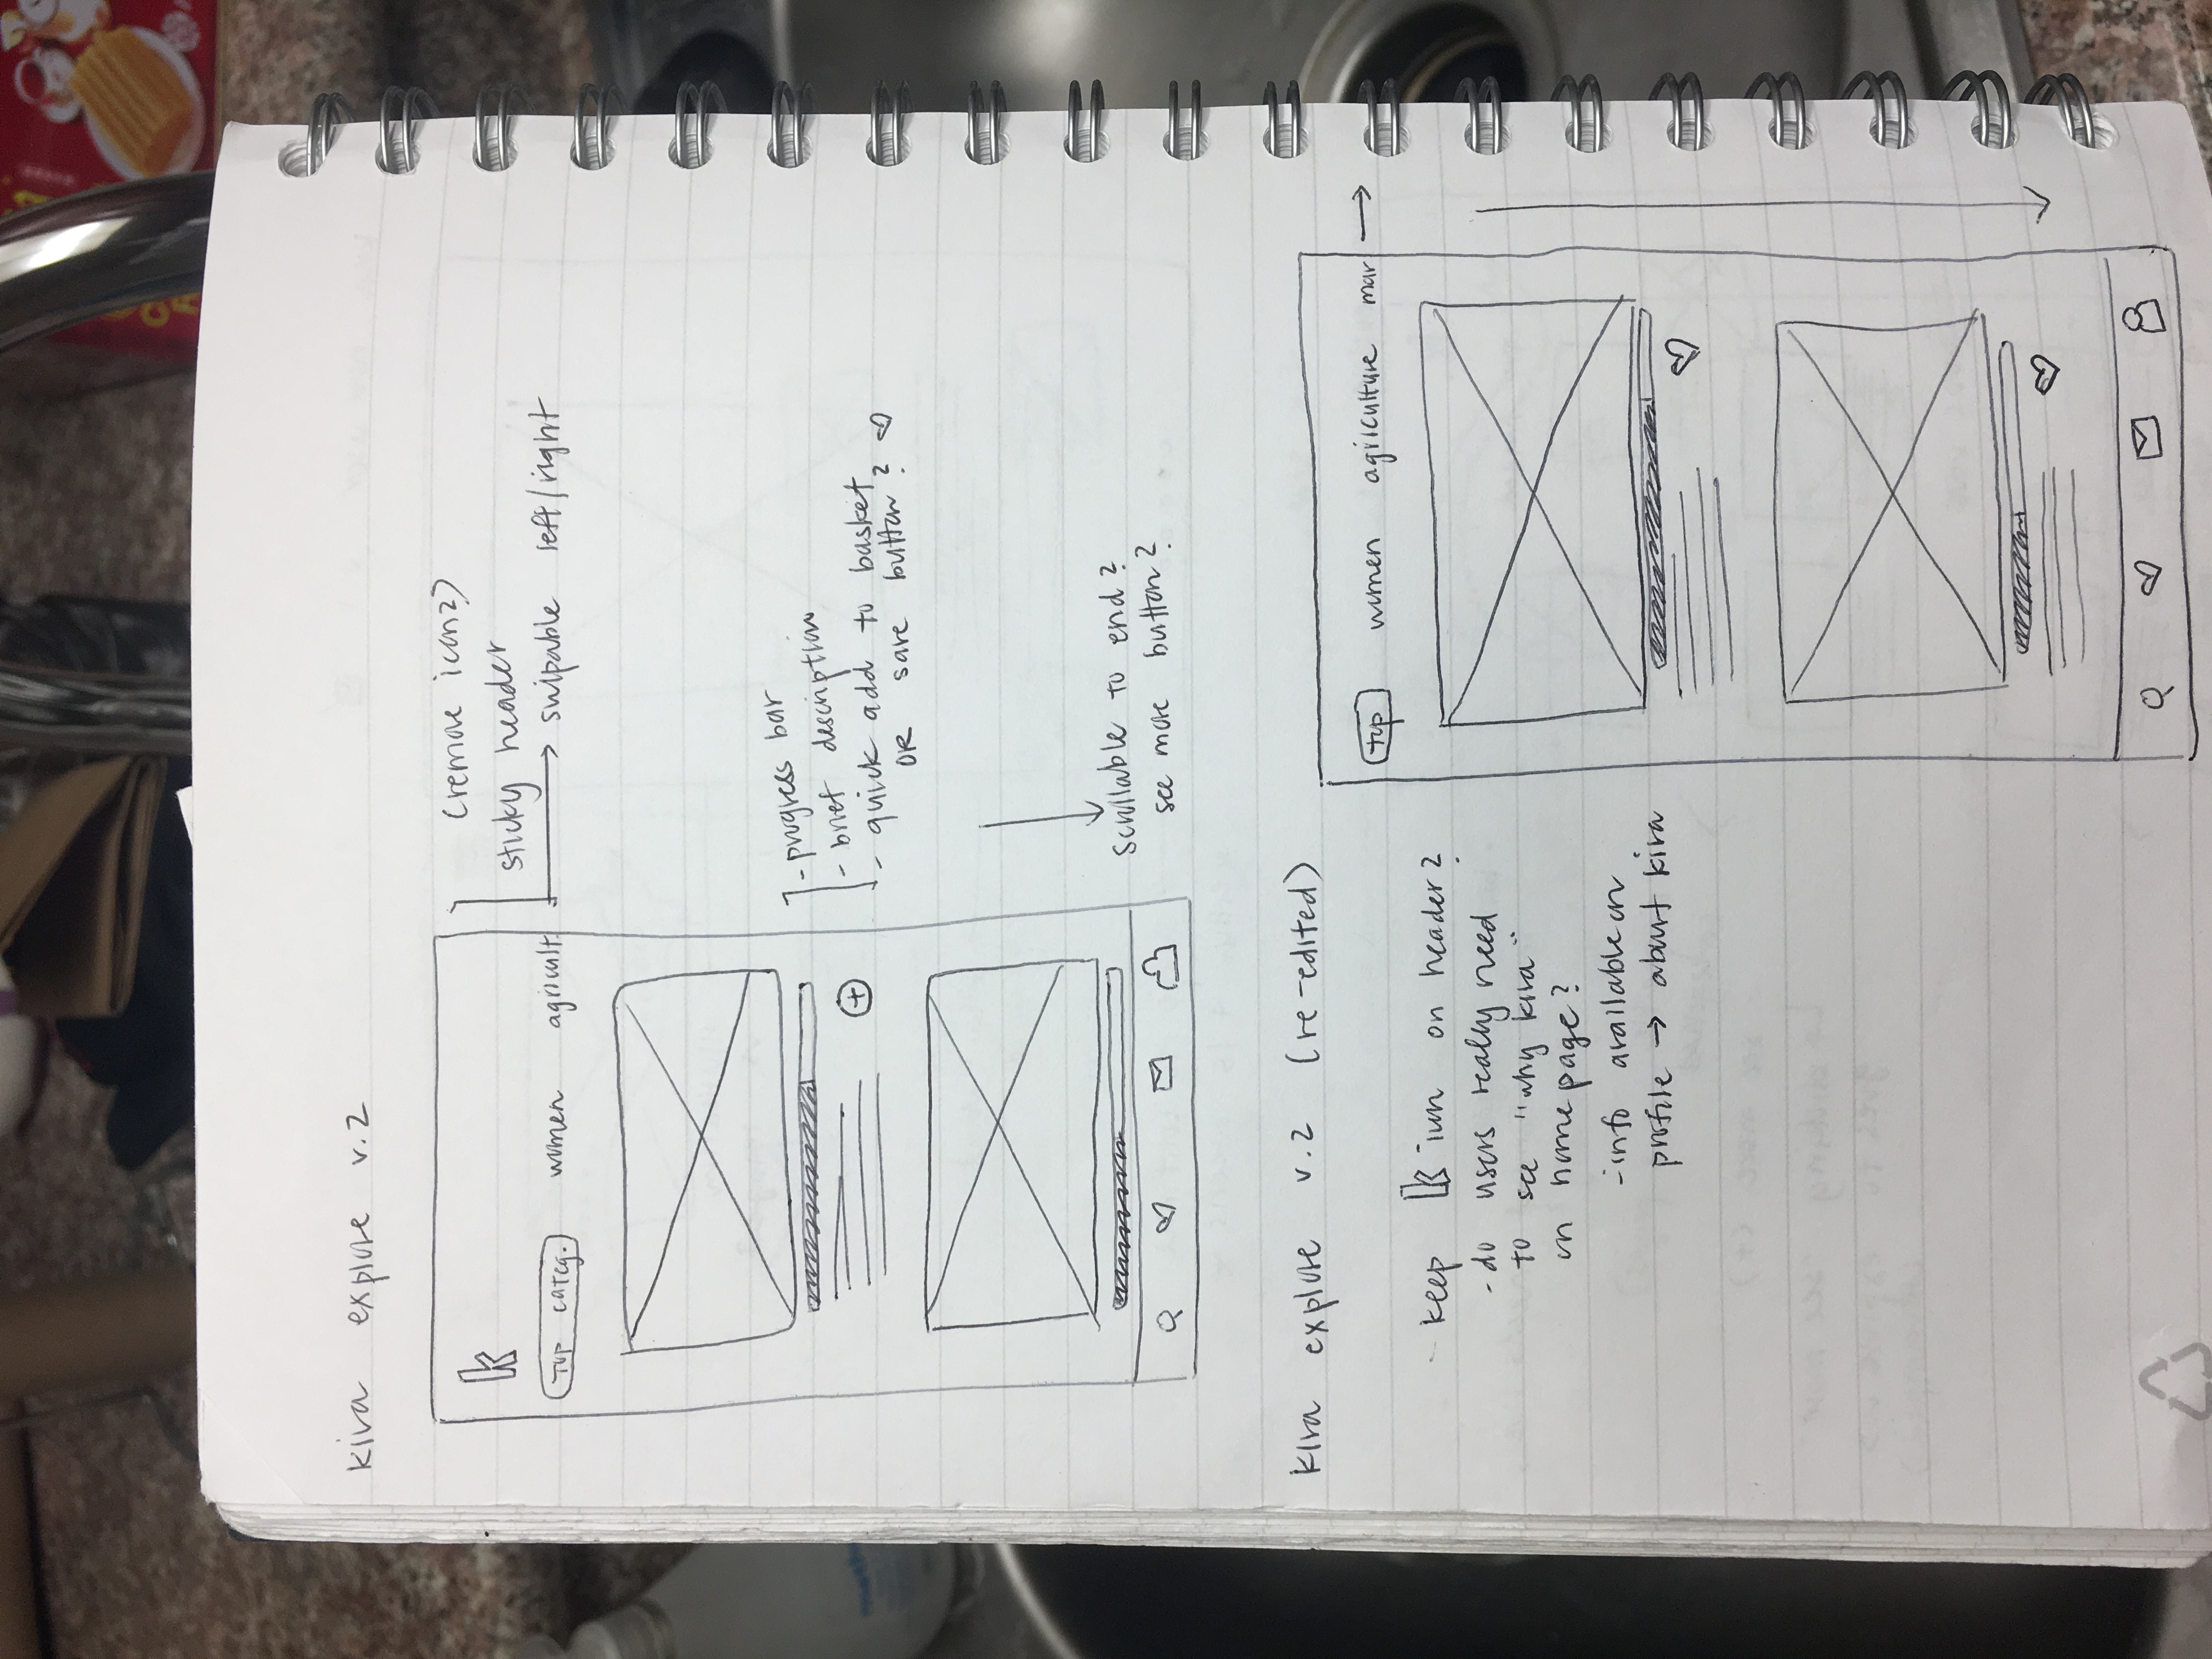 kira explore v.2
k
(remove icon?)
sticky header
Top categ. women agricult.
swipable left/right
- progress bar
- brief description
- quick add to basket
OR save button?
scrollable to end?
see more button?
kira explore v.2 (re-edited)
top women agriculture mar
- keep k icon on header?
- do users really need
to see "why kira"
on homepage?
- info available on
profile → about kira